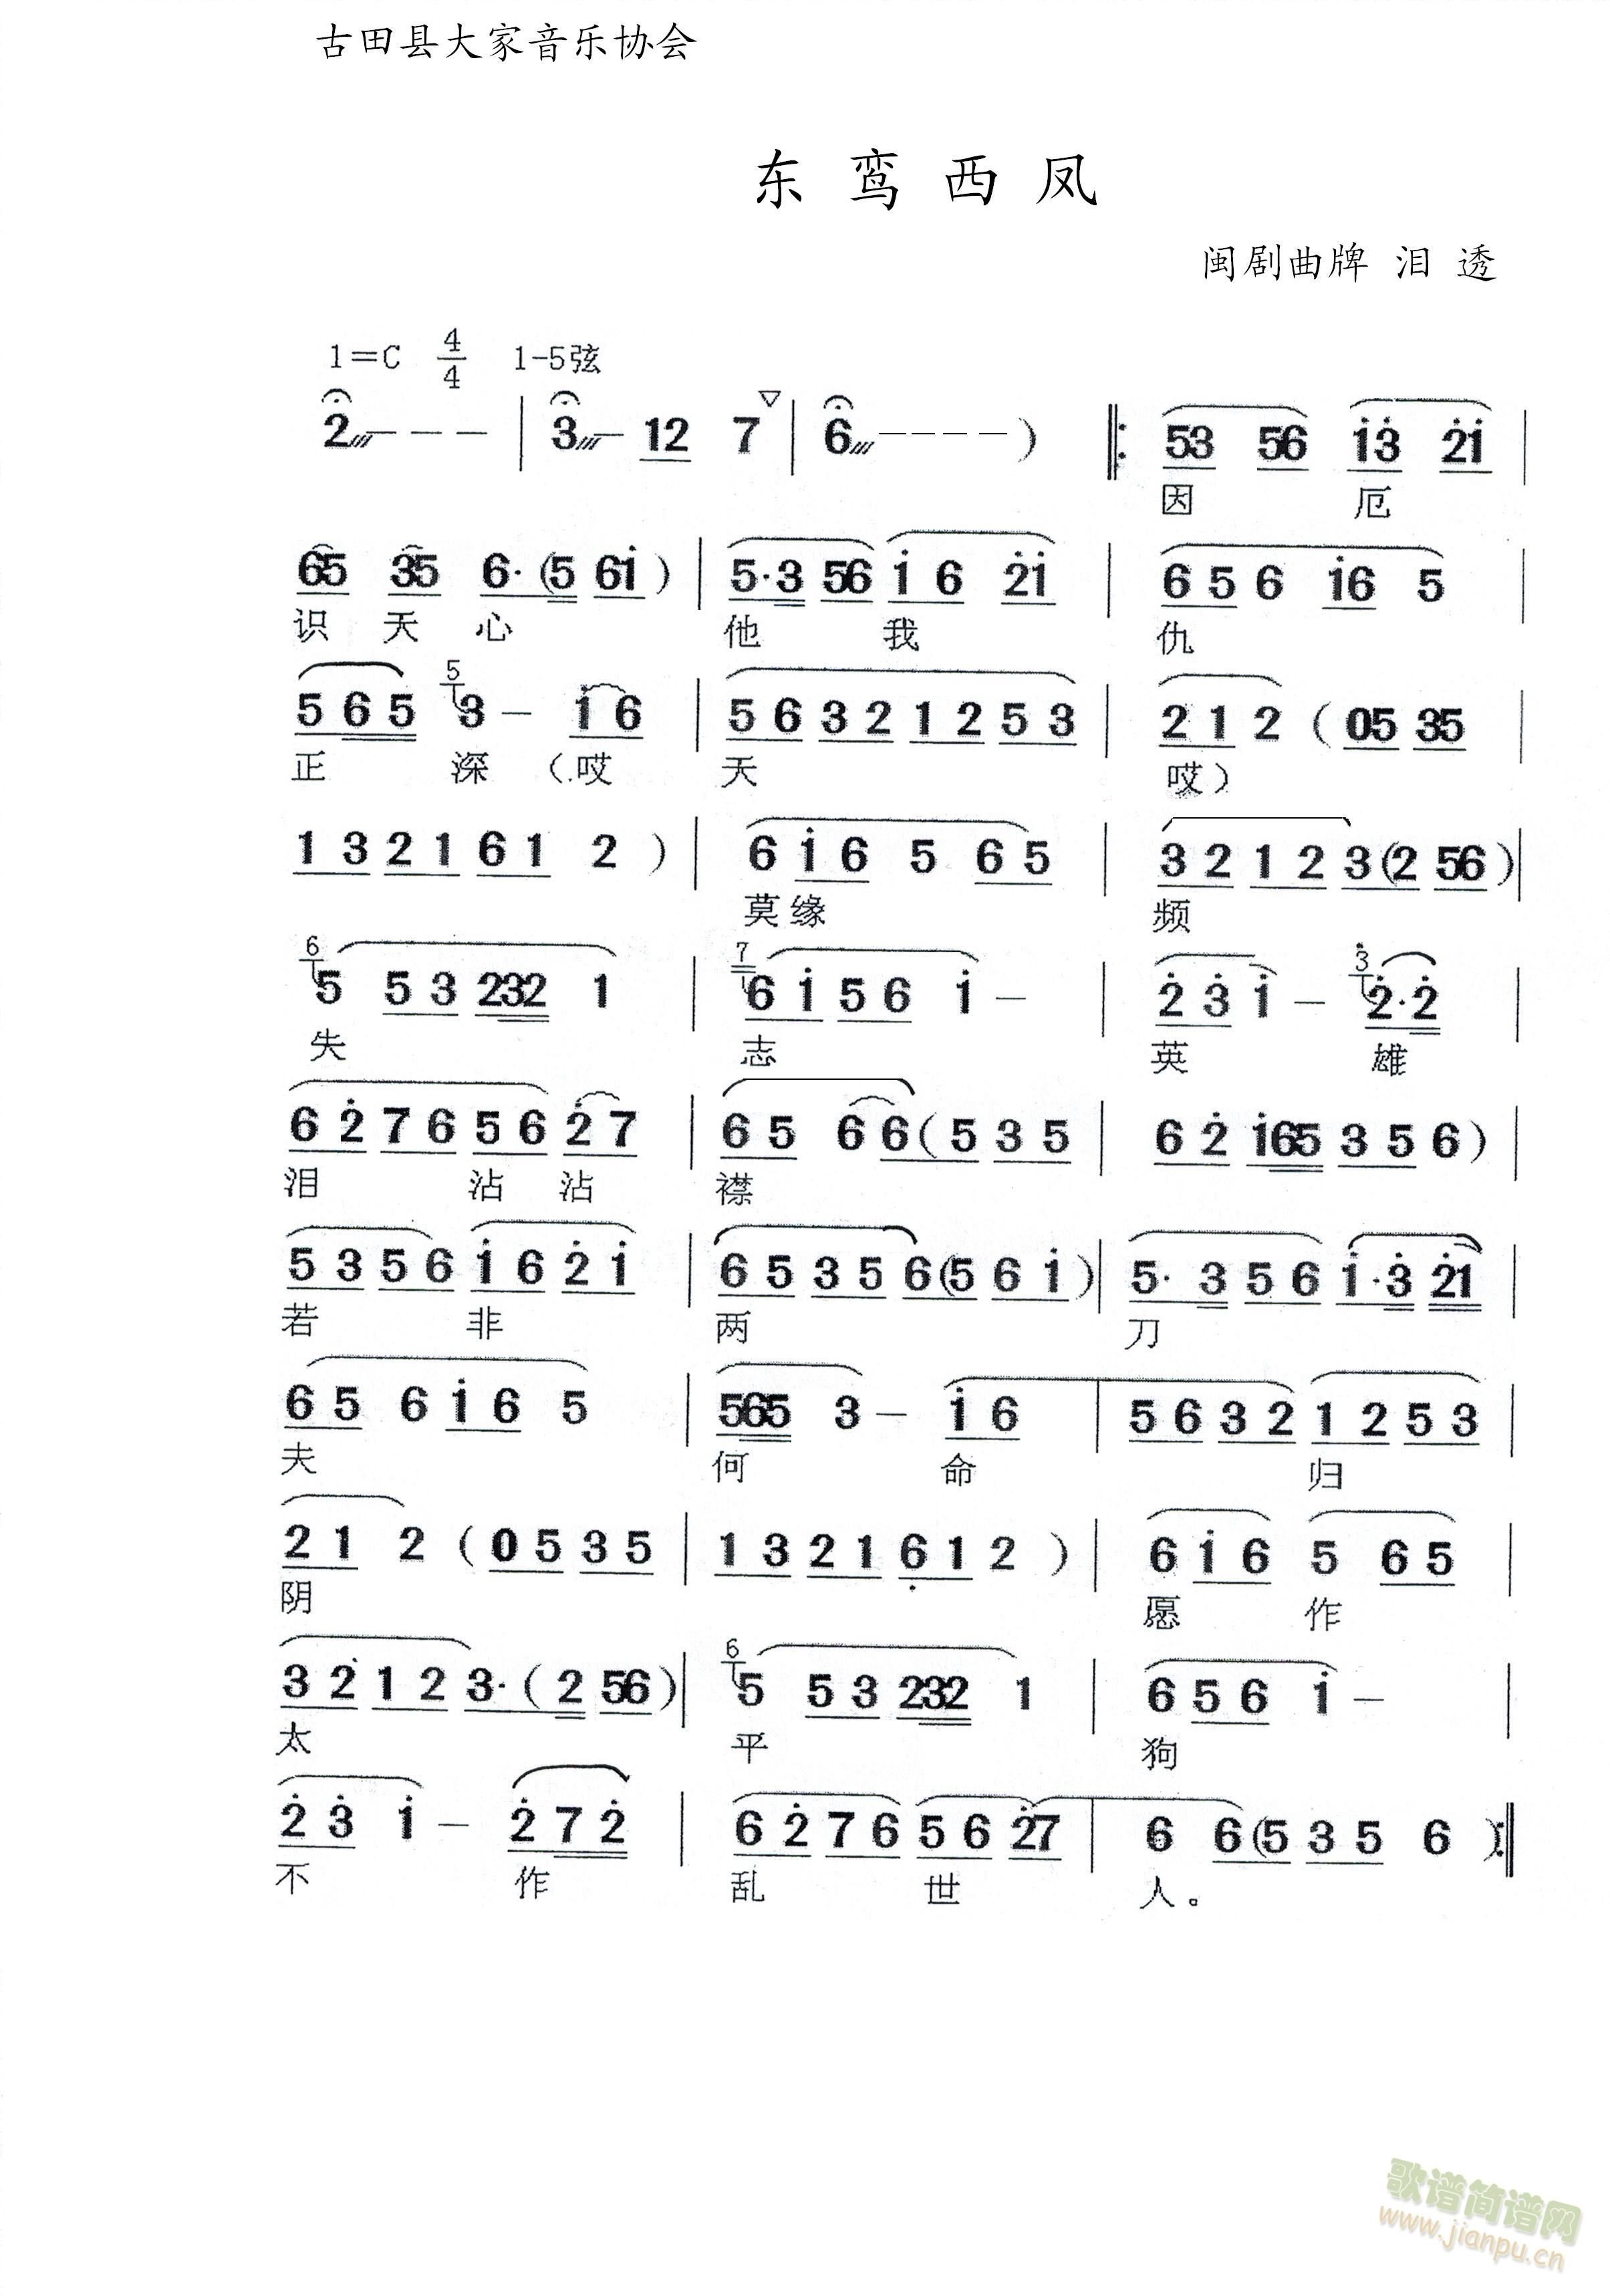 古田县大家音乐协会
东鸾西凤
闽剧曲牌 泪 透
1=C 4/4 1-5弦
2 - - - | 3 - 12 7 ▽ | 6 - - - - ) ‖: 53 56 i3 2i |
因 厄
65 35 6·(5 6i) | 5·3 56 i 6 2i | 6 5 6 i6 5 |
识 天 心 他 我 仇
5 6 5 5 3 - i 6 | 5 6 3 2 1 2 5 3 | 2 1 2 ( 05 35 |
正 深 (哎 天 哎)
1 3 2 1 6 1 2 ) | 6 i 6 5 6 5 | 3 2 1 2 3(2 56)|
莫缘 频
6 5 5 3 232 1 | 7 6 i 5 6 i - | 2 3 i - 3 2·2 |
失 志 英 雄
6 2 7 6 5 6 2 7 | 6 5 6 6(5 3 5 | 6 2 i65 3 5 6) |
泪 沾 沾 襟
5 3 5 6 i 6 2 i | 6 5 3 5 6(5 6 i)| 5· 3 5 6 i·3 2i |
若 非 两 刀
6 5 6 i 6 5 | 565 3 - i 6 | 5 6 3 2 1 2 5 3 |
夫 何 命 归
2 1 2 ( 0 5 3 5 | 1 3 2 1 6 1 2 ) | 6 i 6 5 6 5 |
阴 愿 作
3 2 1 2 3·(2 56)| 6 5 5 3 232 1 | 6 5 6 i - |
太 平 狗
2 3 i - 2 7 2 | 6 2 7 6 5 6 27 | 6 6(5 3 5 6 ):‖
不 作 乱 世 人。
歌谱简谱网
www.jianpu.cn